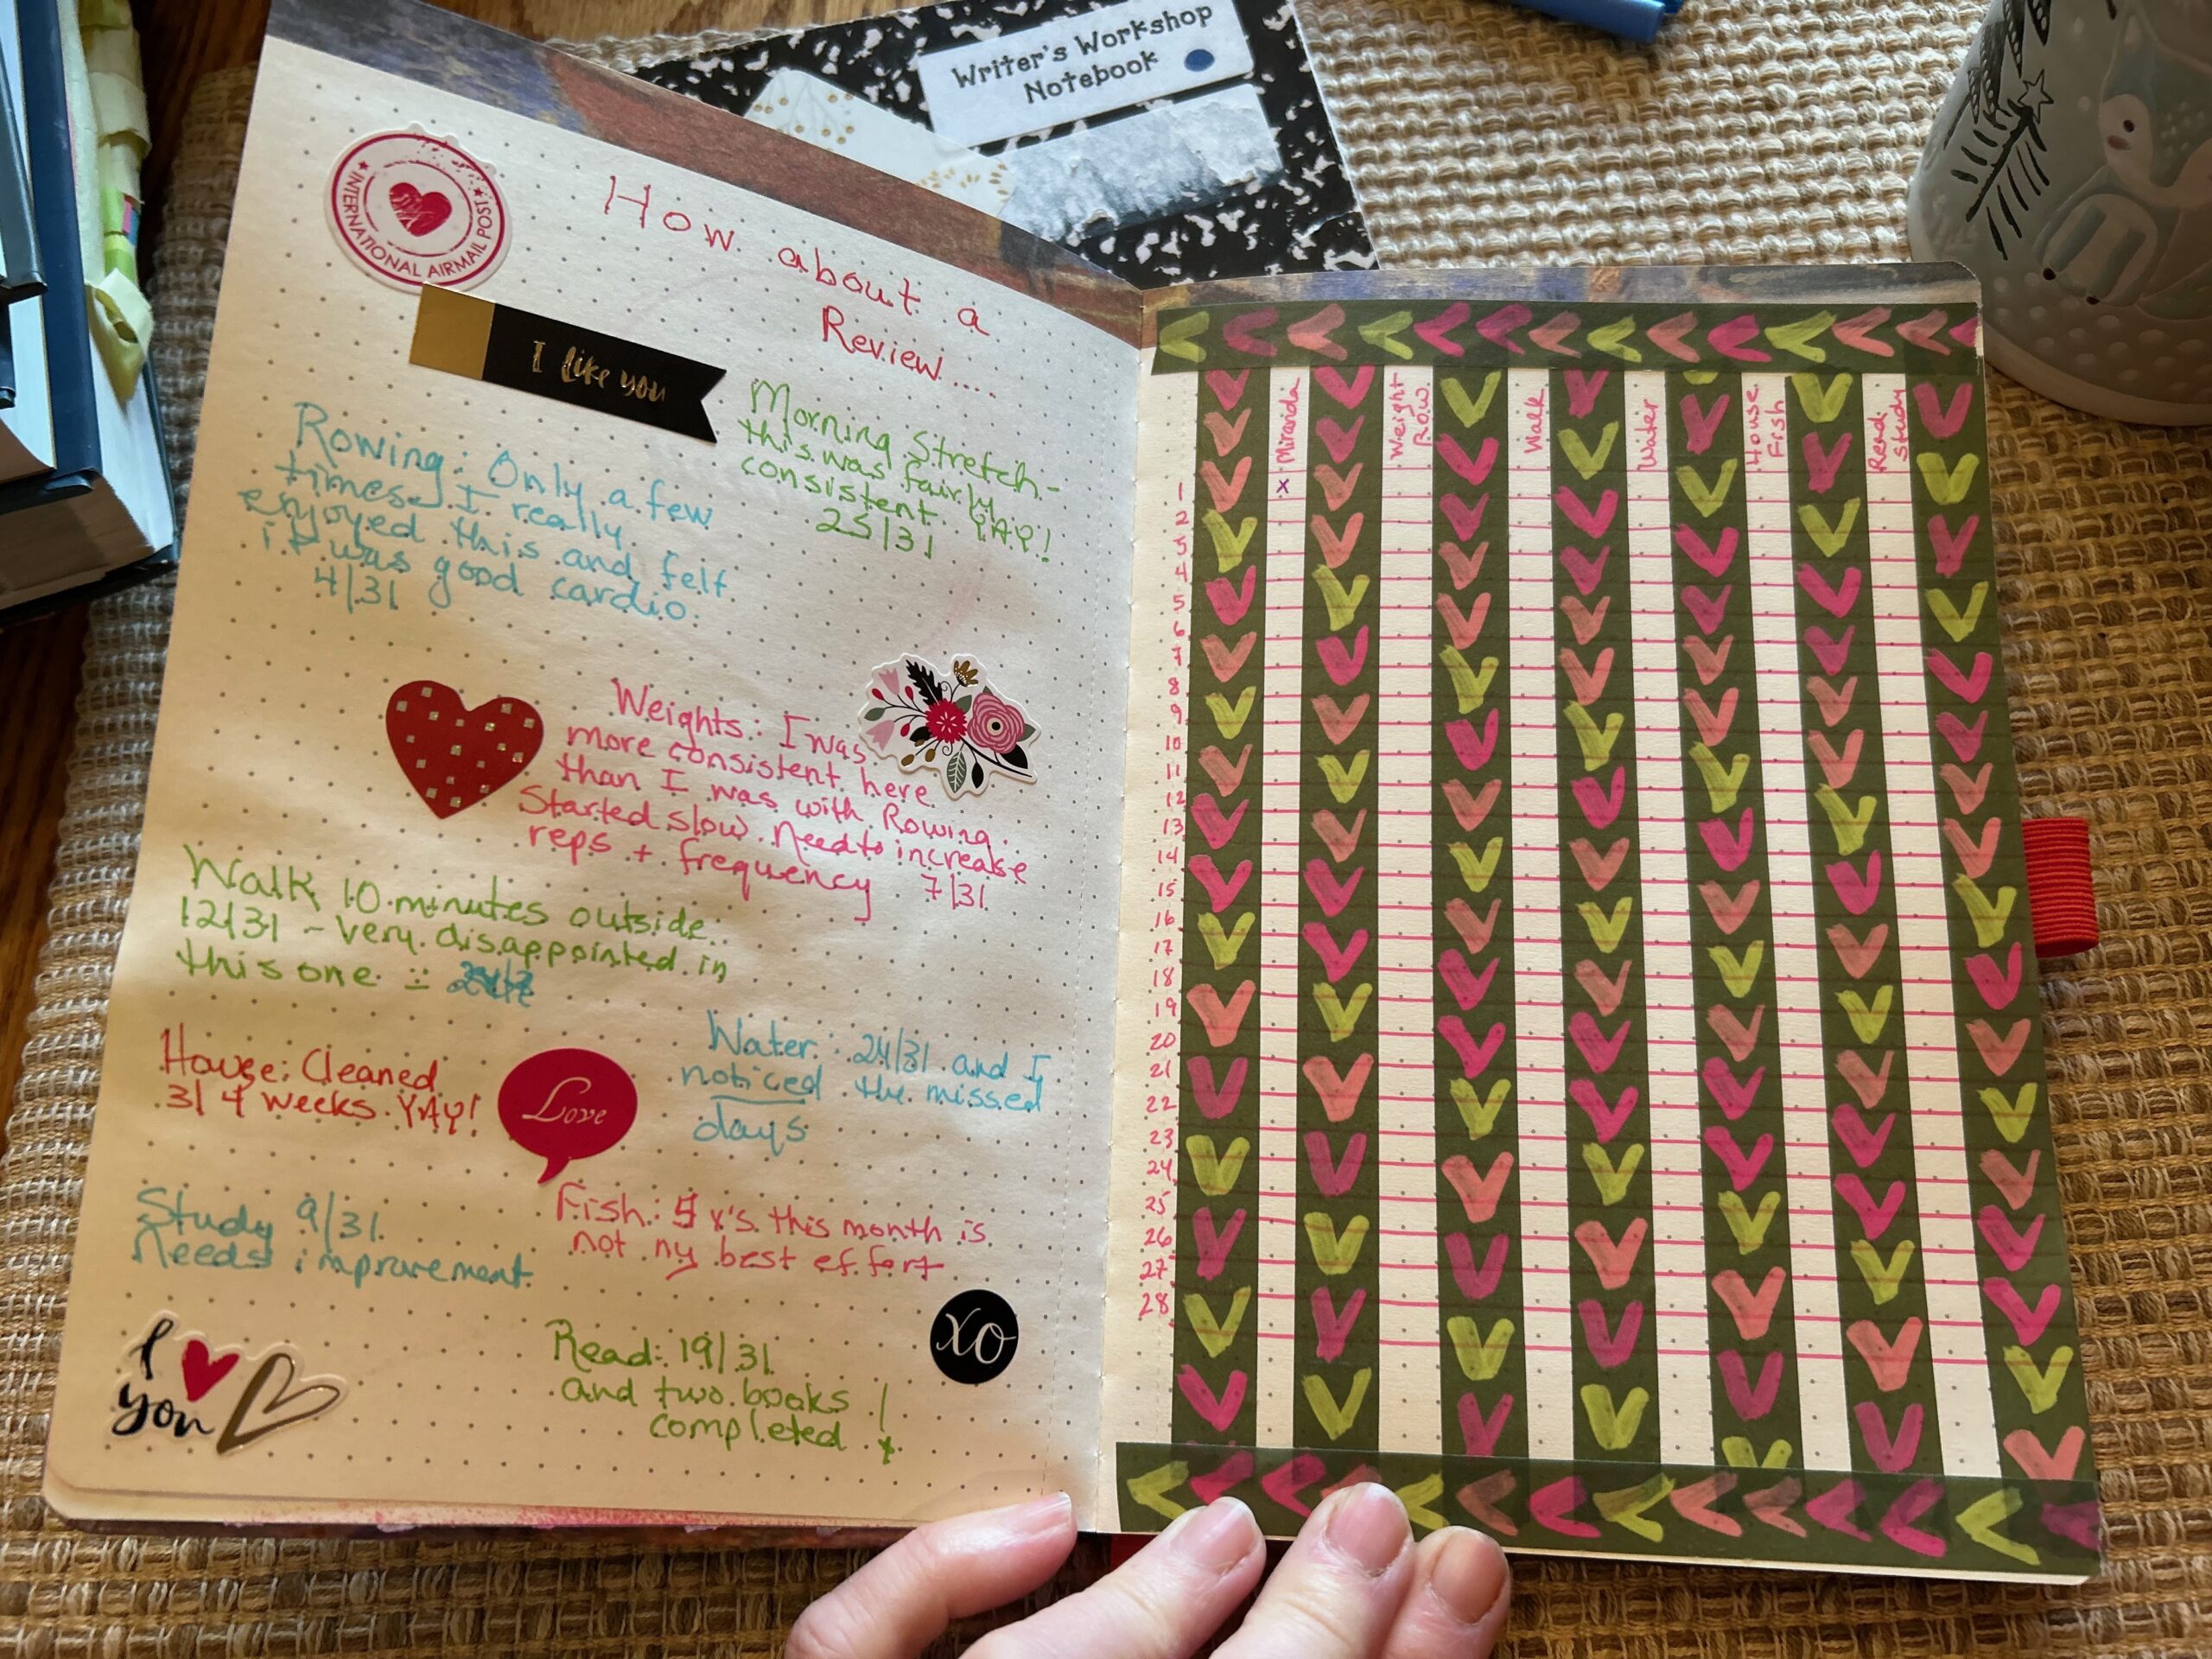 Writer's Workshop
Notebook
INTERNATIONAL AIRMAIL POST
How about a
Review....
I like you
Morning Stretch -
this was fairly
consistent. YAY!
25/31
Rowing: Only a few
times. I really
enjoyed this and felt
it was good cardio.
4/31
Weights: I was
more consistent here
than I was with Rowing.
Started slow. Need to increase
reps + frequency 7/31
Walk 10 minutes outside
12/31 - Very disappointed in
this one
House: Cleaned
3/4 weeks. YAY!
Love
Water: 24/31 and I
noticed the missed
days
Study 9/31
Needs improvement.
Fish: 5 x's this month is
not my best effort
I
you
Read: 19/31
and two books
completed!
XO
Miranda
Weight
Row
Walk
Water
House
Fish
Read
Study
1 x
2
3
4
5
6
7
8
9
10
11
12
13
14
15
16
17
18
19
20
21
22
23
24
25
26
27
28